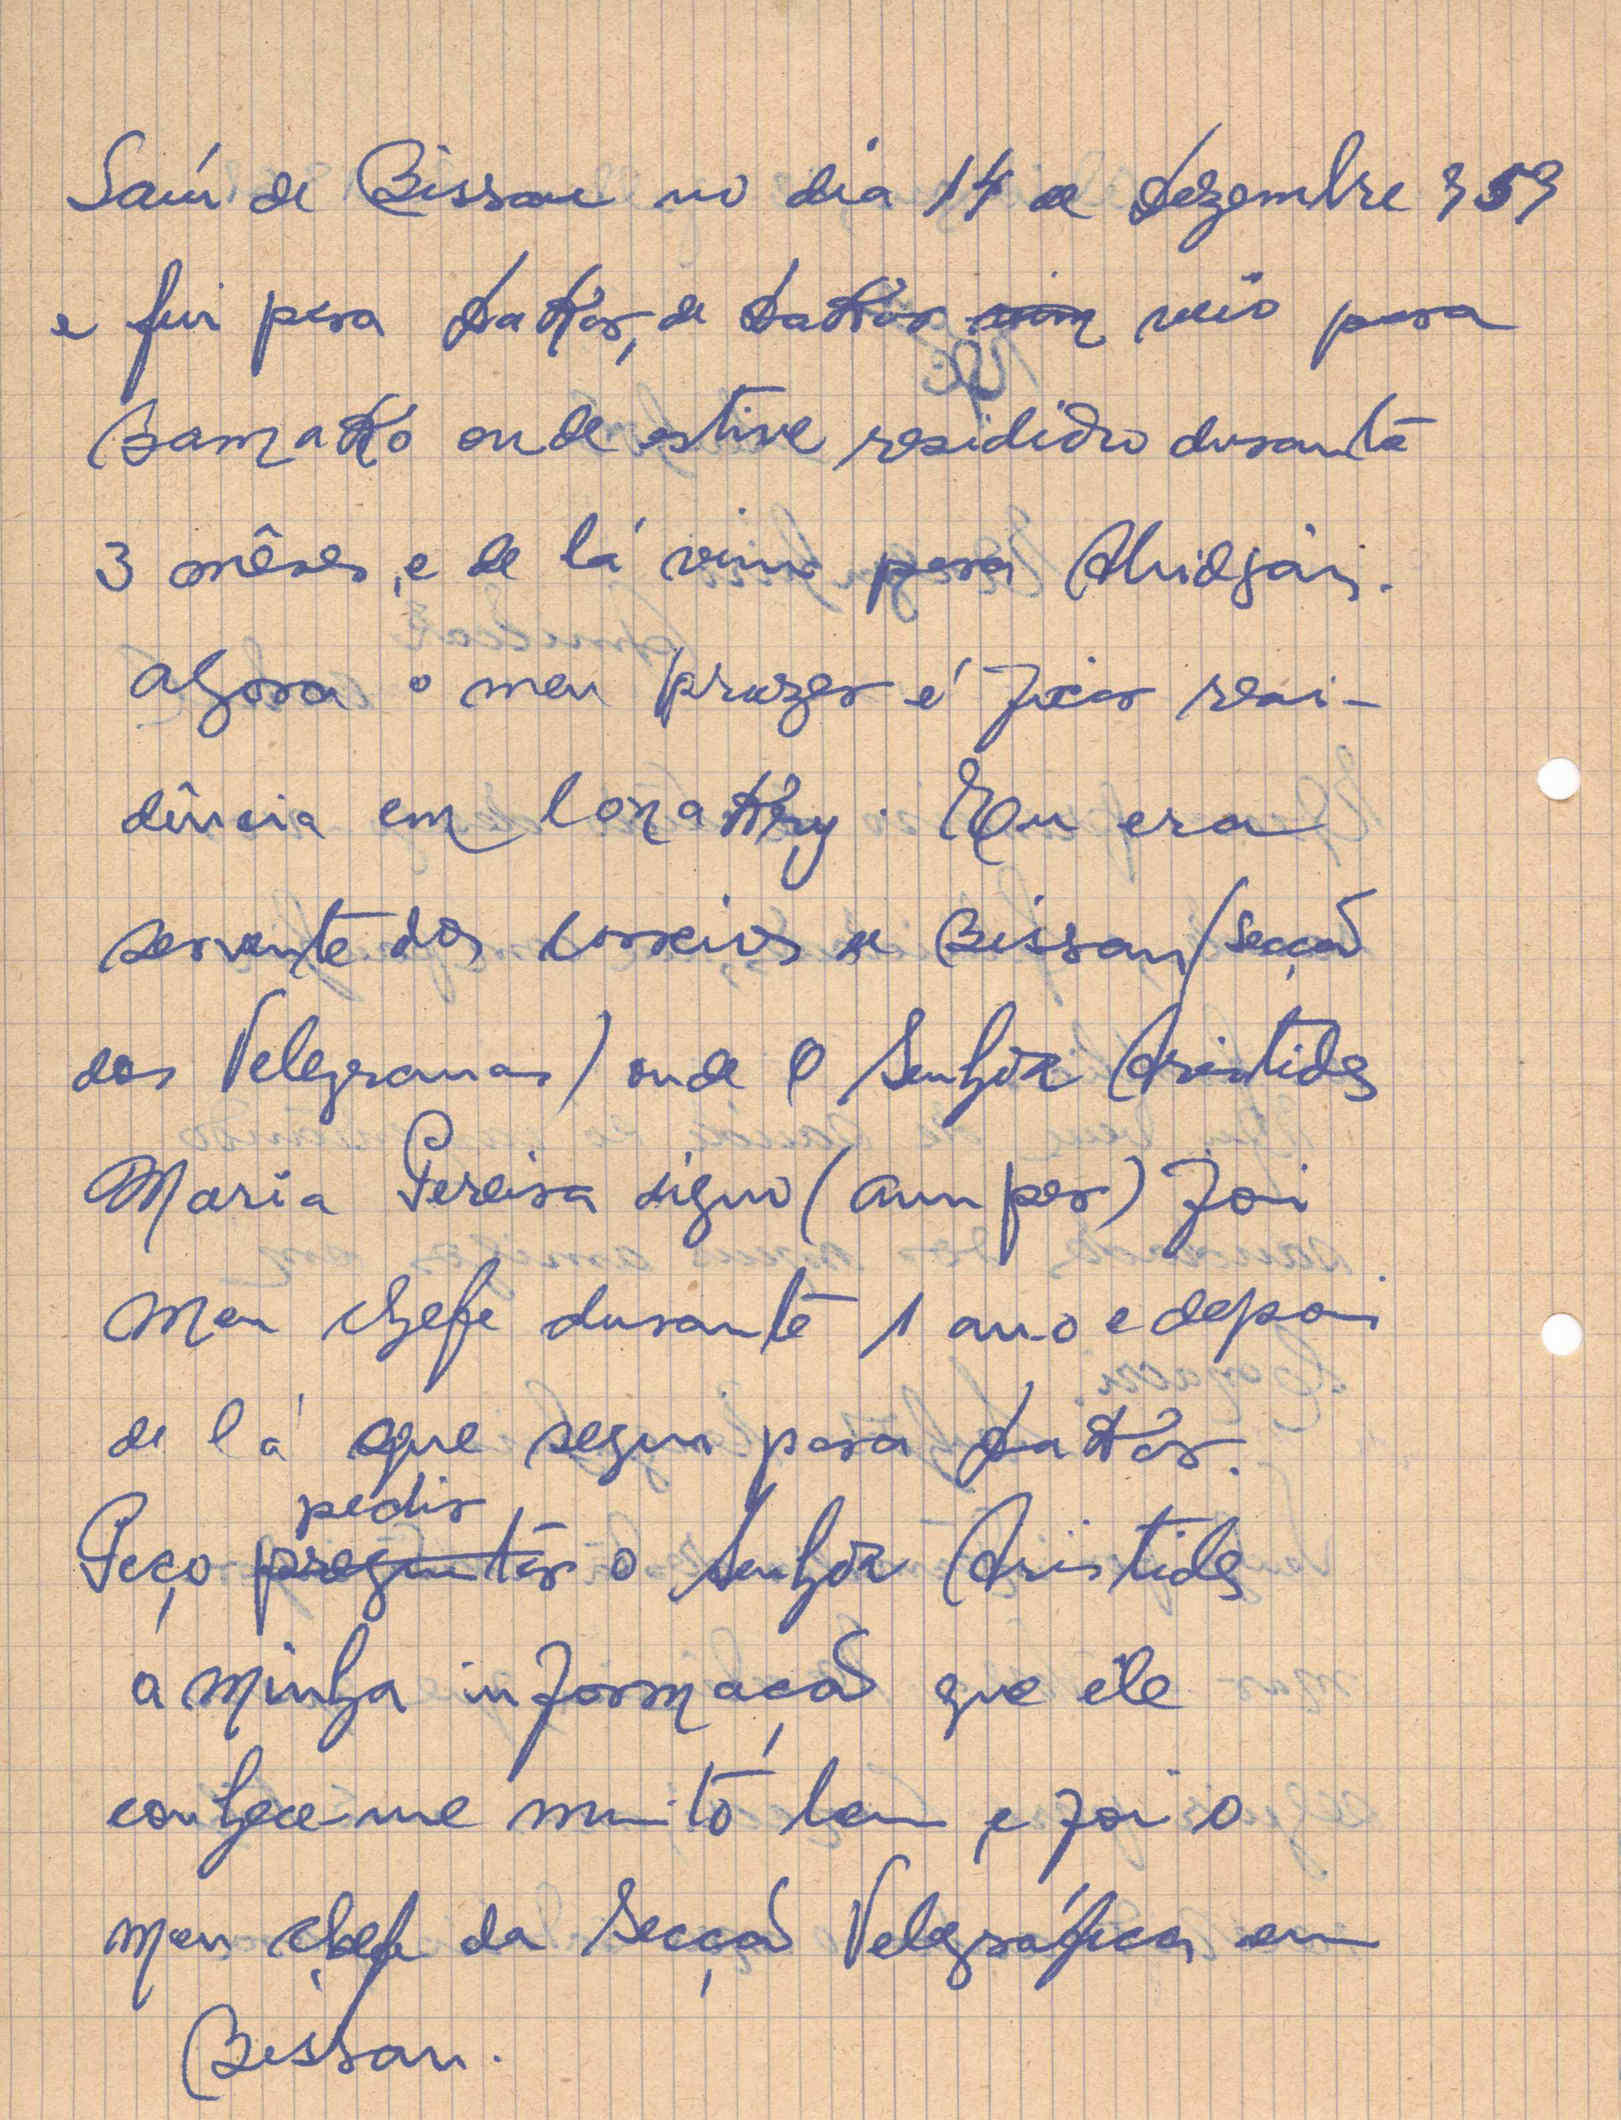 Saúi de Bissau no dia 14 de dezembre 959
e fui para dakar, de dakar vim veio para
Bamako onde estive residido durante
3 mêses, e de lá vim para Abidgan.
Agora o meu prazer é ficar resi-
dência em Conakry. Eu era
servente dos correios de Bissau (secção
dos Telegramas) onde o Senhor Aristides
Maria Pereira digno (aun per) foi
meu chefe durante 1 ano e depois
de lá que segui para dakar.
pedir
Peço preguntar o Senhor Aristides
a minha informação que êle
conhece-me muito bem, e foi o
meu chefe da Secção Telegráfica em
Bissau.